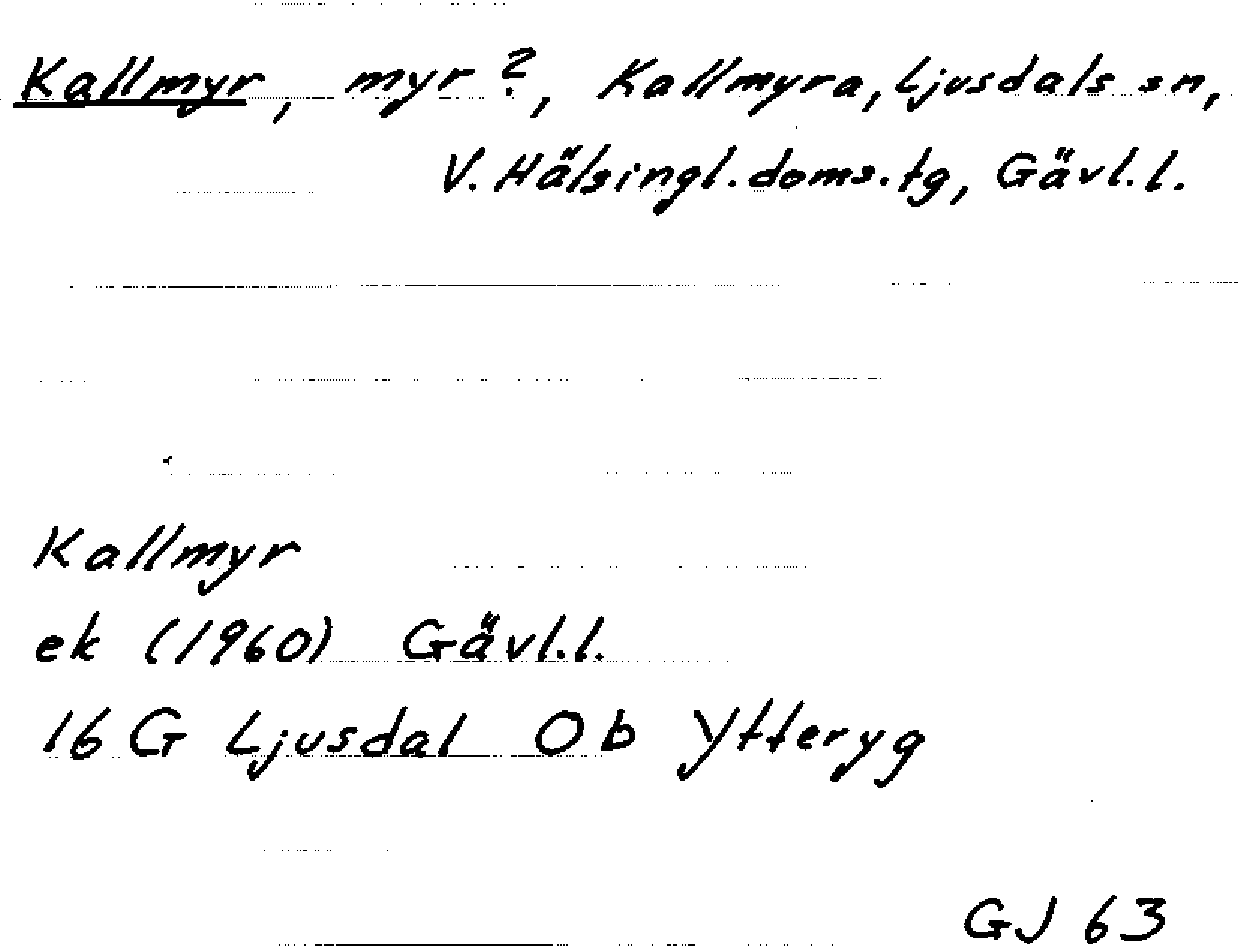 Kallmyr, myr?, Kallmyra, Ljusdals sn,
V. Hälsingl. doms. tg, Gävl. l.
Kallmyr
ek (1960) Gävl. l.
16 G Ljusdal O b Ytteryg
GJ 63